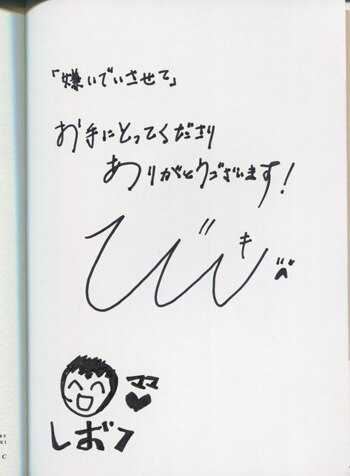 「嫌いでいさせて」
お手にとってくださり
ありがとうございます!
ひじき
ママ♥